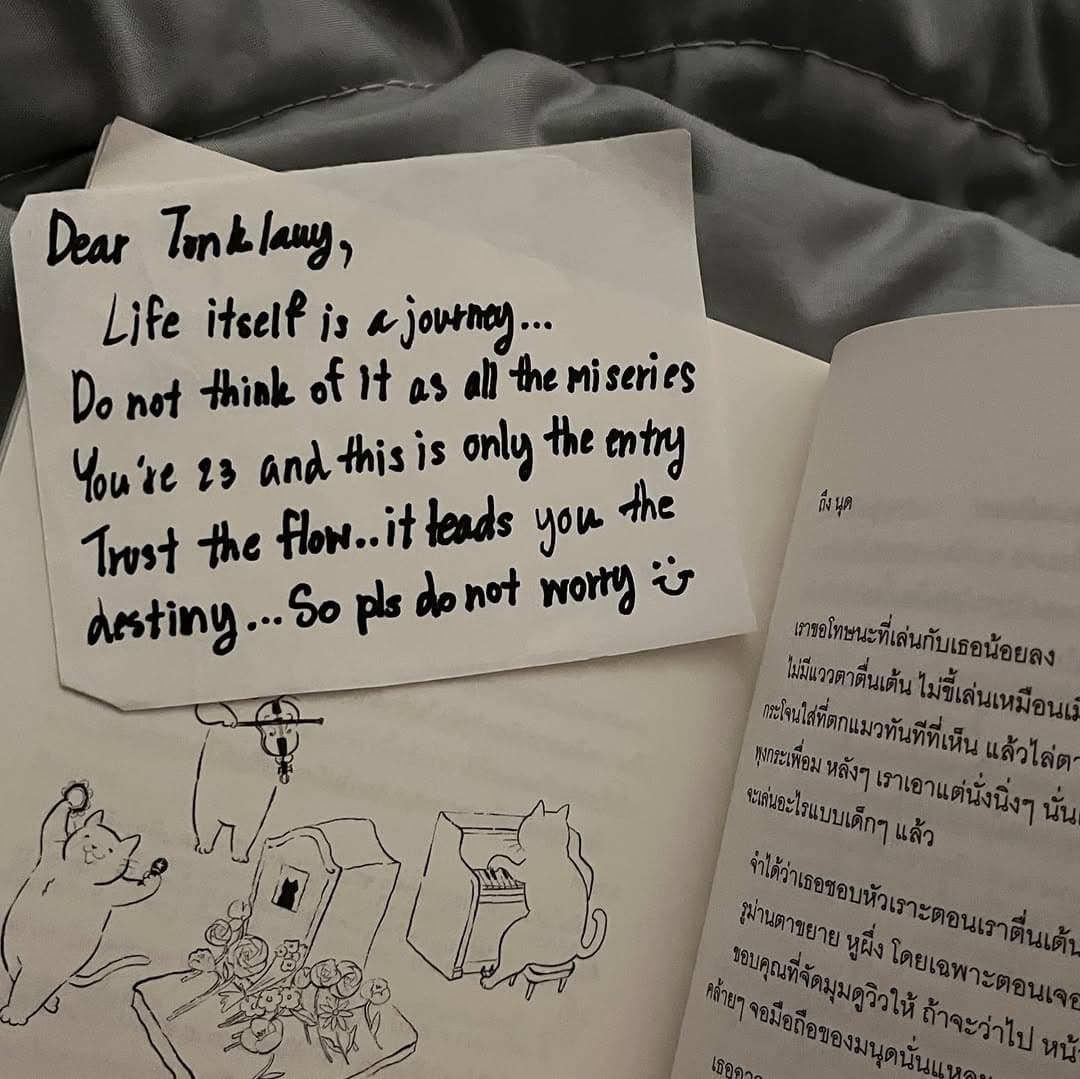 Dear Tonklauy,
Life itself is a journey...
Do not think of it as all the miseries
You're 23 and this is only the entry
Trust the flow..it leads you the
destiny...So pls do not worry
ถึง นุด
เราขอโทษนะที่เล่นกับเธอน้อยลง
ไม่มีแววตาตื่นเต้น ไม่ขี้เล่นเหมือน
กระโจนใส่ที่ตกแมวทันทีที่เห็น แล้วไล่
พุงกระเพื่อม หลังๆ เราเอาแต่นั่งนิ่งๆ
จะเล่นอะไรแบบเด็กๆ แล้ว
จำได้ว่าเธอชอบหัวเราะตอนเราตื่นเต้น
รูม่านตาขยาย หูผึ่ง โดยเฉพาะตอนเจอ
ขอบคุณที่จัดมุมดูวิวให้ ถ้าจะว่าไป
คล้ายๆ จอมือถือของมนุดนั่นแหละ